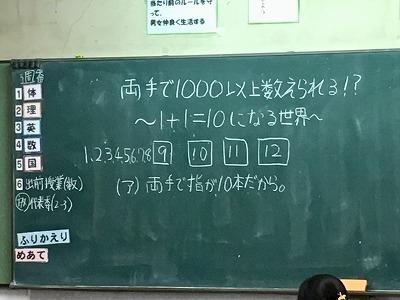 当たり前のルールを守って、
男女仲良く生活する
週番
1 体
2 理
3 英
4 数
5 国
6 出前授業(数)
代表委(2-3)
ふりかえり
めあて
両手で1000以上数えられる!?
〜1+1=10になる世界〜
1,2,3,4,5,6,7,8 9 10 11 12
(ア) 両手で指が10本だから。